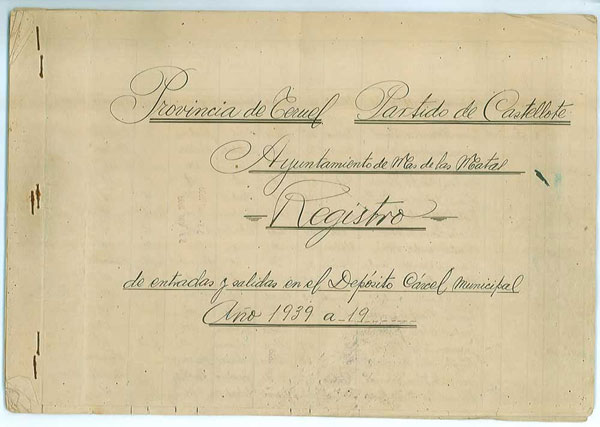 Provincia de Teruel Partido de Castellote
Ayuntamiento de Mas de las Matas
Registro
de entradas y salidas en el Depósito Cárcel Municipal
Año 1939 a 19